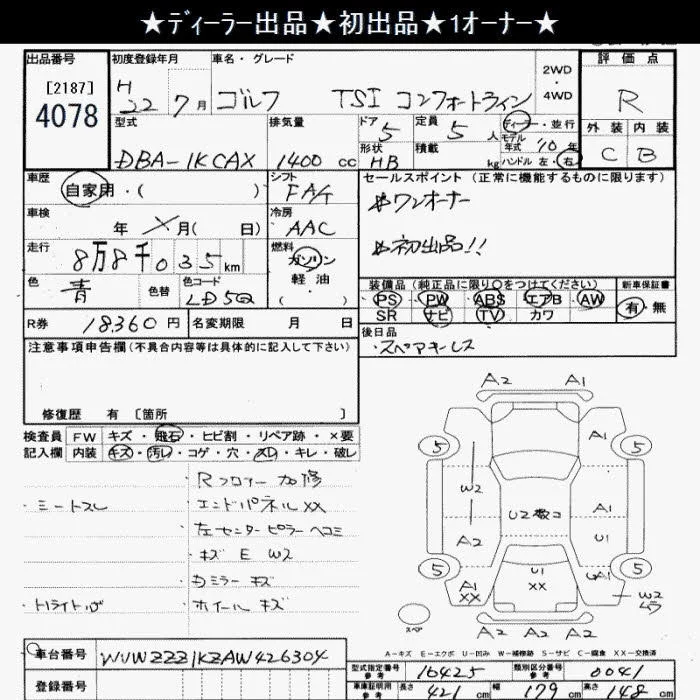 ★ディーラー出品★初出品★1オーナー★
出品番号 初度登録年月 車名・グレード 評価点
[2187]
4078
H 22年 7月 ゴルフ TSI コンフォートライン
2WD・4WD
R
型式 排気量 ドア 定員 ディーラー・並行
DBA-1KCAX 1400cc 5 5人
モデル年式 10年
形状 積載 ハンドル 左・右
HB kg
外装 内装
C B
車歴 シフト セールスポイント(正常に機能するものに限ります)
自家用・( ) FA4
※ワンオーナー
車検 冷房
年 月( 日) AAC
※初出品!!
走行 燃料
8万8千035km ガソリン
軽油・( )
色 色替 色コード
青 LD5Q
装備品(純正品に限り○をつけてください) 新車保証書
PS PW ABS エアB AW 有・無
SR ナビ TV カワ
R券 18,360円 名変期限 月 日
後日品
・スペアキーレス
注意事項申告欄(不具合内容等は具体的に記入して下さい)
修復歴 有 [箇所 ]
検査員 FW キズ・飛石・ヒビ割・リペア跡・×要
記入欄 内装 キズ・汚レ・コゲ・穴・スレ・キレ・破レ
Rフロアー 加修
・シートスレ エンドパネル XX
左センターピラー ヘコミ
キズ E W2
ミラー キズ
ホイール キズ
A2 A1
5 A1 5
W2 U2 数コ A1
A2 U1
5 U1 5
A1 XX XX A1
W2 ムラ
スペア
A2 A2 A2
A-キズ E-エクボ U-凹み W-補修跡 S-サビ C-腐食 XX-交換済
車台番号 WVWZZZ1KZAW426304
登録番号
型式指定番号 参考 16425 類別区分番号 参考 0041
車庫証明用 参考 長さ 421cm 幅 179cm 高さ 148cm